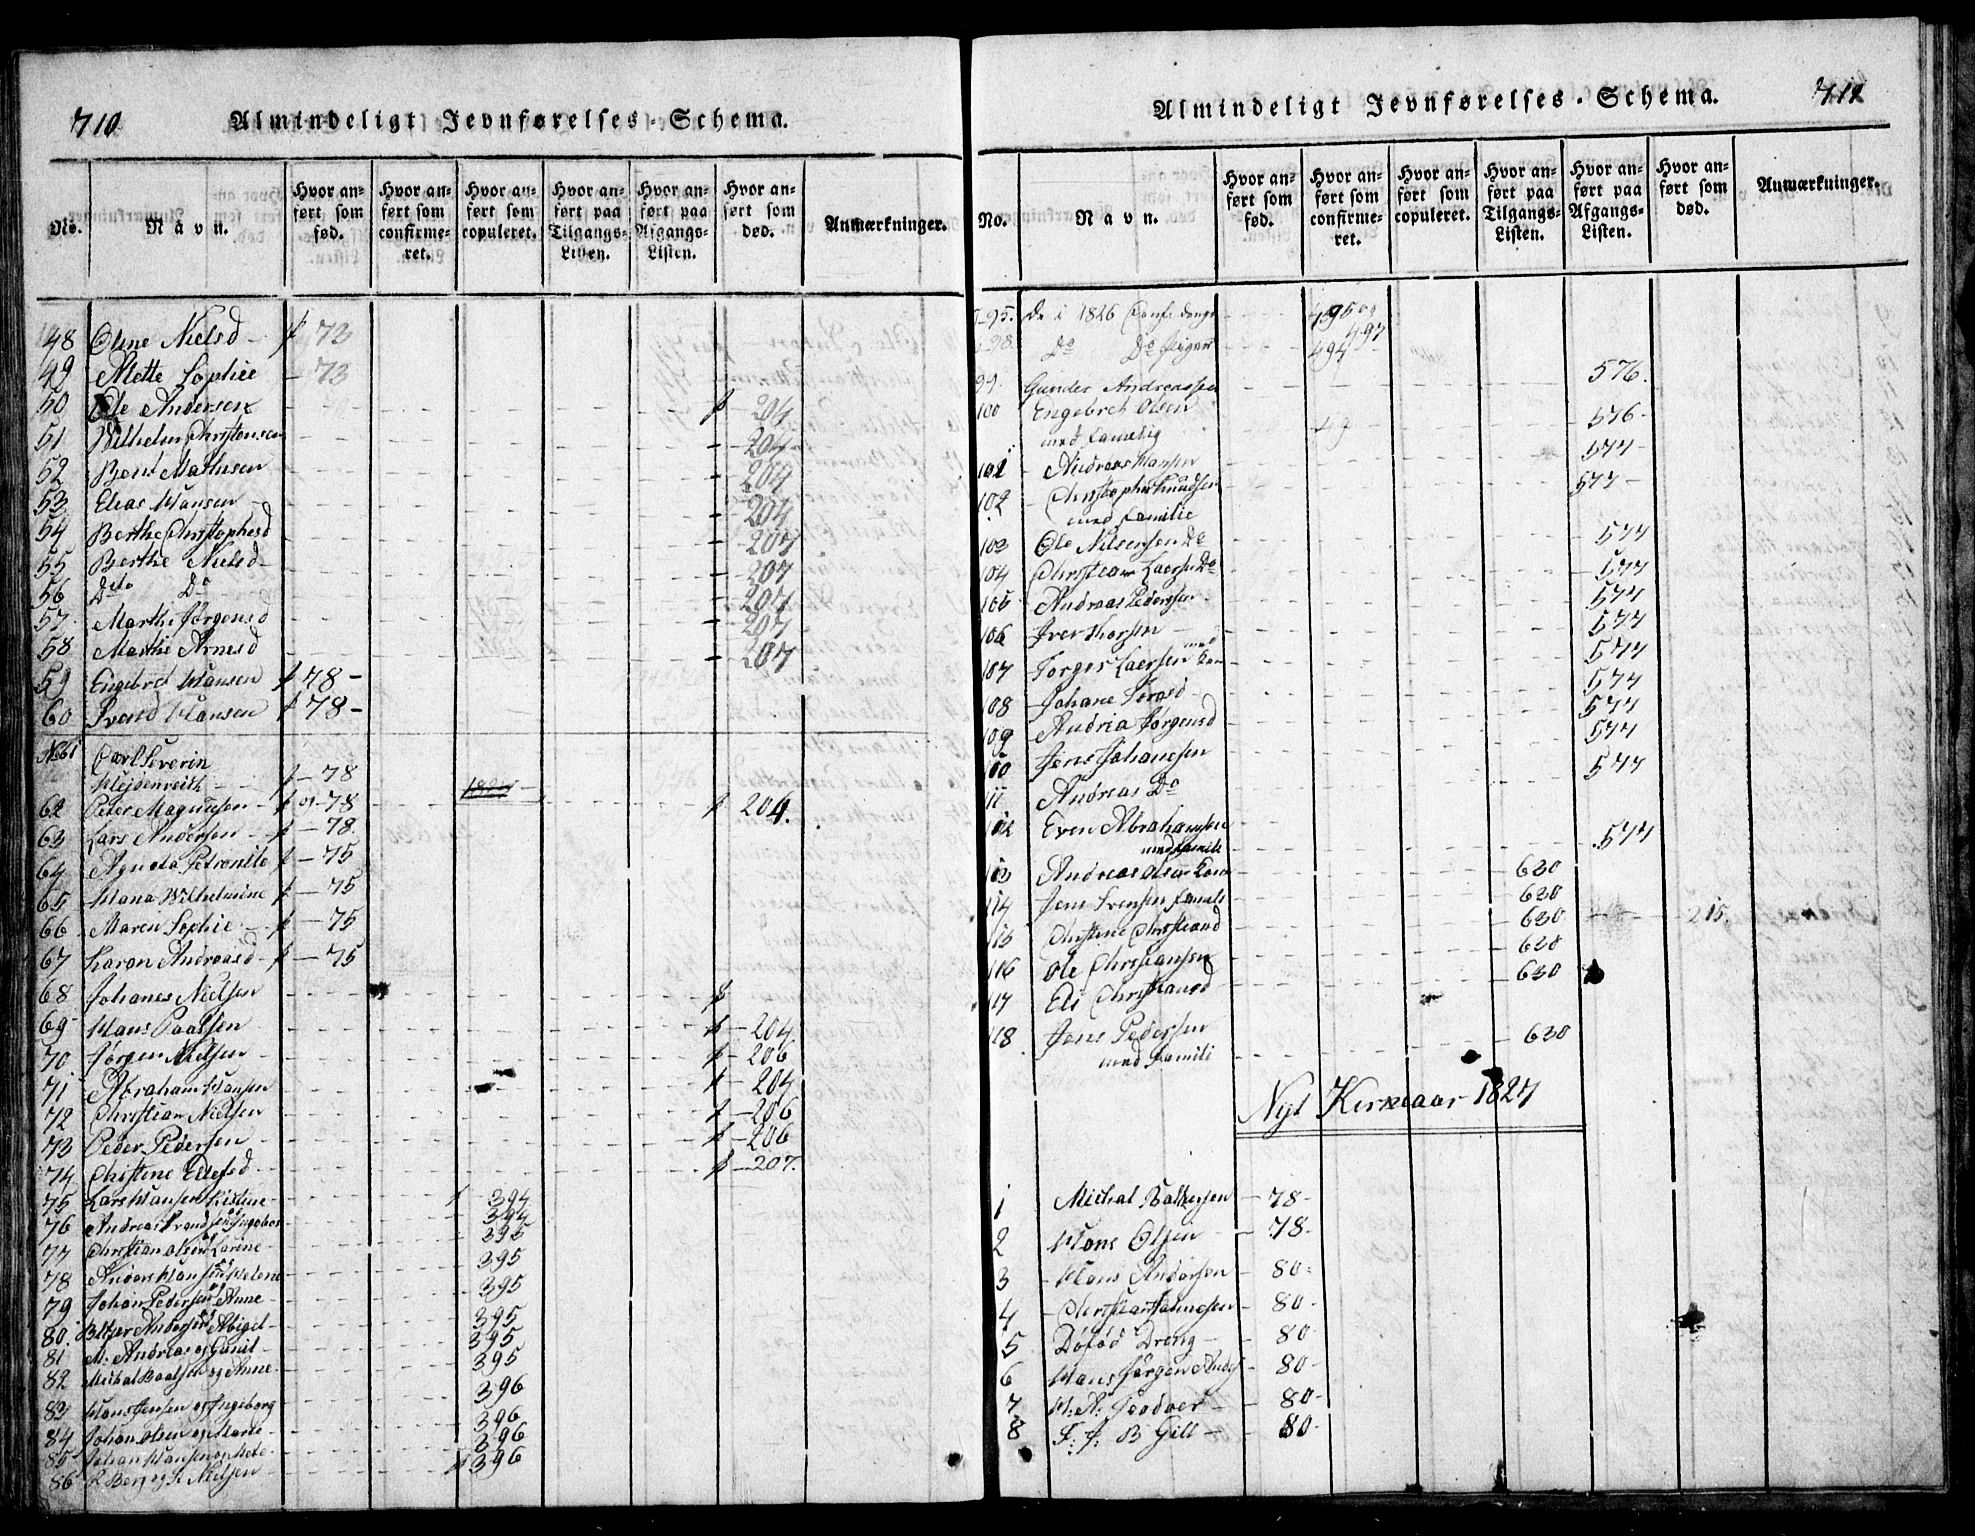 710
Almindeligt Jevnførelses-Schema.
No. Navn. Hvor anført som fød. Hvor anført som confirmeret. Hvor anført som copuleret. Hvor anført paa Tilgangs-Listen. Hvor anført paa Afgangs-Listen. Hvor anført som død. Anmærkninger.
48 Oline Nielsd 73
49 Mette Sophie 73
50 Ole Andersen 204
51 Wilhelm Christensen 204
52 Bent Mathisen 204
53 Elias Hansen 204
54 Berthe Christophesd 207
55 Berthe Nielsd 207
56 Dito Do 207
57 Marthe Jørgensd 207
58 Marthe Arnesd 207
59 Engebret Hansen 78
60 Svend Hansen 78
No 61 Carl Severin
Hejdenreich 78
62 Peter Magnusen 78 204.
63 Lars Andersen 78.
64 Agneta Petronile 75
65 Hana Wilhelmine 75
66 Maren Sophie 75
67 Karen Andreasd 75
68 Johanes Nielsen
69 Hans Paalsen 204
70 Jørgen Nielsen 206
71 Abraham Hansen 204
72 Christian Nielsen 206
73 Peder Pedersen 206
74 Christine Ellefsd 207.
75 Lars Hansen Kistine 394
76 Andreas Svendsen Ingebor 394
77 Christian Olsen Karine 395
78 Anders Hansen Helene 395
79 Johan Pedersen Anne 395
80 Andersen Abigel 395
81 M: Andreas og Gunil 395
82 Michal Paalsen og Anne 395
83 Hans Jensen og Ingeborg 396
84 Johan Olsen og Marte 396
85 Johan Hansen og Mete 396
86 Berg og Nielsen 396
711
Almindeligt Jevnførelses-Schema.
No. Navn. Hvor anført som fød. Hvor anført som confirmeret. Hvor anført som copuleret. Hvor anført paa Tilgangs-Listen. Hvor anført paa Afgangs-Listen. Hvor anført som død. Anmærkninger.
95. De i 1826 Conf: drenge 495 og
497
98. Do Do piger 494
99. Gunder Andreassen 576.
100 Engebret Olsen 576
med familig
101 Andreas Hansen 577
102 Christopher Knudsen 577
med familie
103 Ole Nilsensen Do 577
104 Christian Larsen Do 577
105 Andreas Pedersen 577
106 Iver Thorsen 577
107 Torger Laersen med Fam 577
108 Johane Torgsd 577
109 Andria Jørgensd 577
110 Jens Johanesen 577
11 Andreas Do 577
112 Even Abrahamsen
med famili 577
113 Andreas Olsen Fam 630
114 Jens Svensen famili 630
115 Christine Christiansd 630 215.
116 Ole Christiansen 620
117 Eli Christiansd 630
118 Jens Pedersen 630
med Famili
Nyt Kirkeaar 1827
1 Michal Balthersen 78
2 Hans Olsen 78
3 Hans Andersen 80
4 Christian Hansen 80
5 Døfød Dreng 80
6 Hans Jørgen Anders 80
7 H. A: 80
8 F: J: B Gill 80